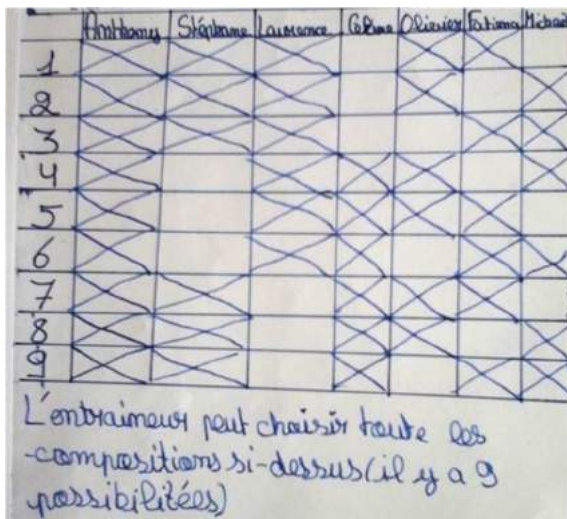 Anthony Stéphane Laurence Coline Olivier Fatima Michael
1
2
3
4
5
6
7
8
9
L'entraineur peut choisir toute les
-compositions si-dessus (il y a 9
possibilitées)